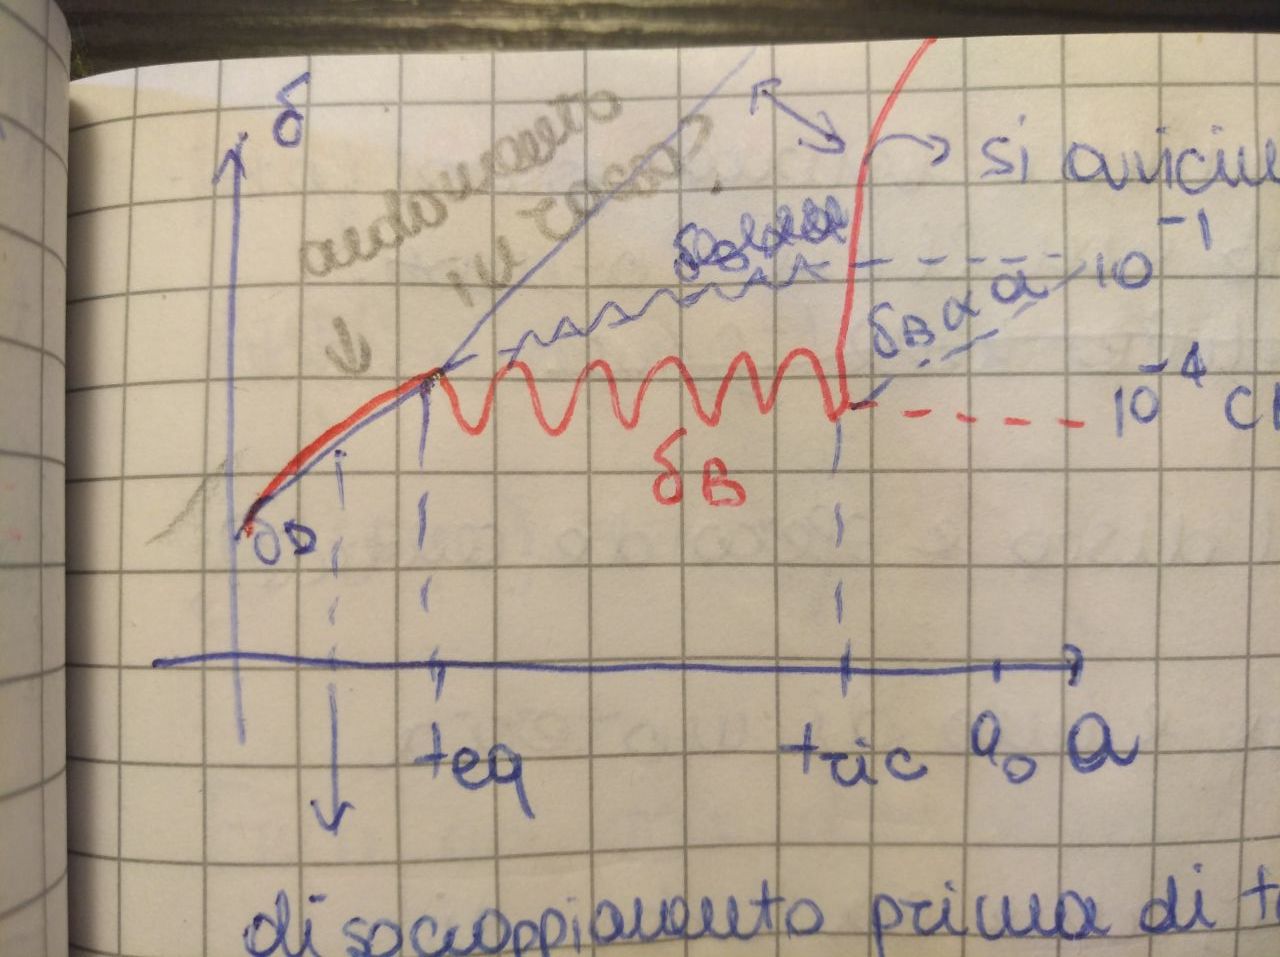 δ
andamento
in rosa?
si avvicin
10⁻¹
δB α a
10⁻⁴
δB
δD
teq
tric
a₀
a
disaccoppiamento prima di t